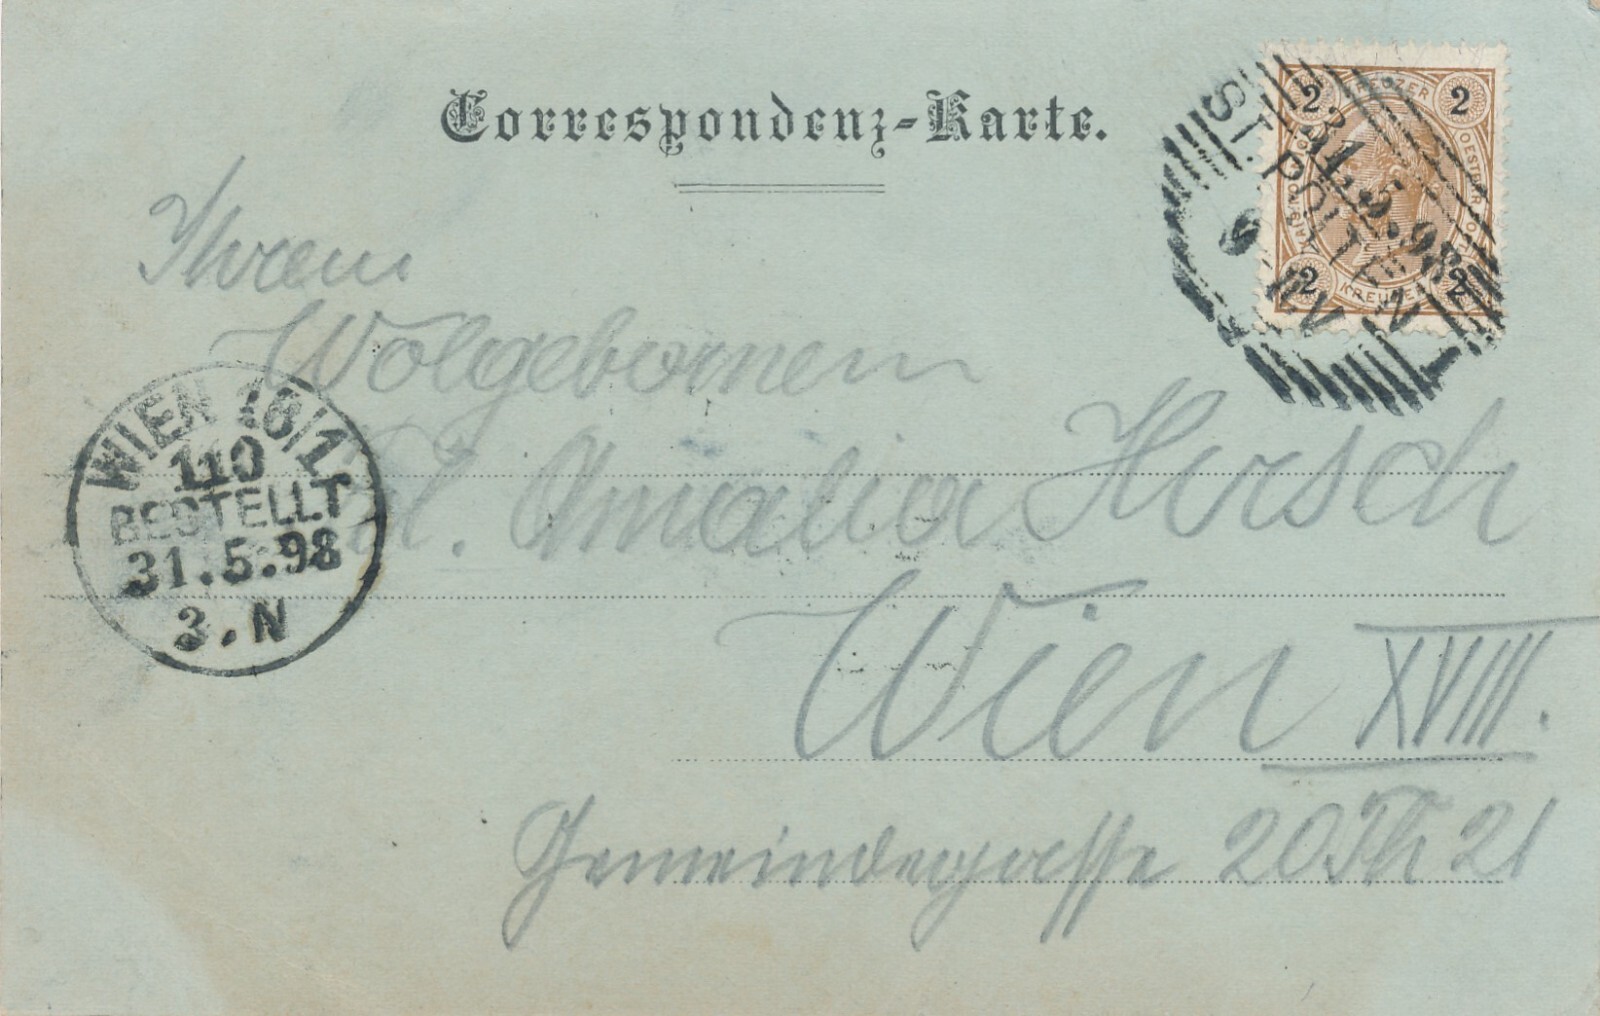 Correspondenz-Karte.
2 KREUZER 2
2 KREUZER 2
ST. PÖLTEN
31.5.98
Ihrem
Wolgebornen
Frl. Amalia Hirsch
Wien XVIII.
Gemeindegasse 20 Th 21
WIEN 18/1.
110
BESTELLT
31.5.98
3.N